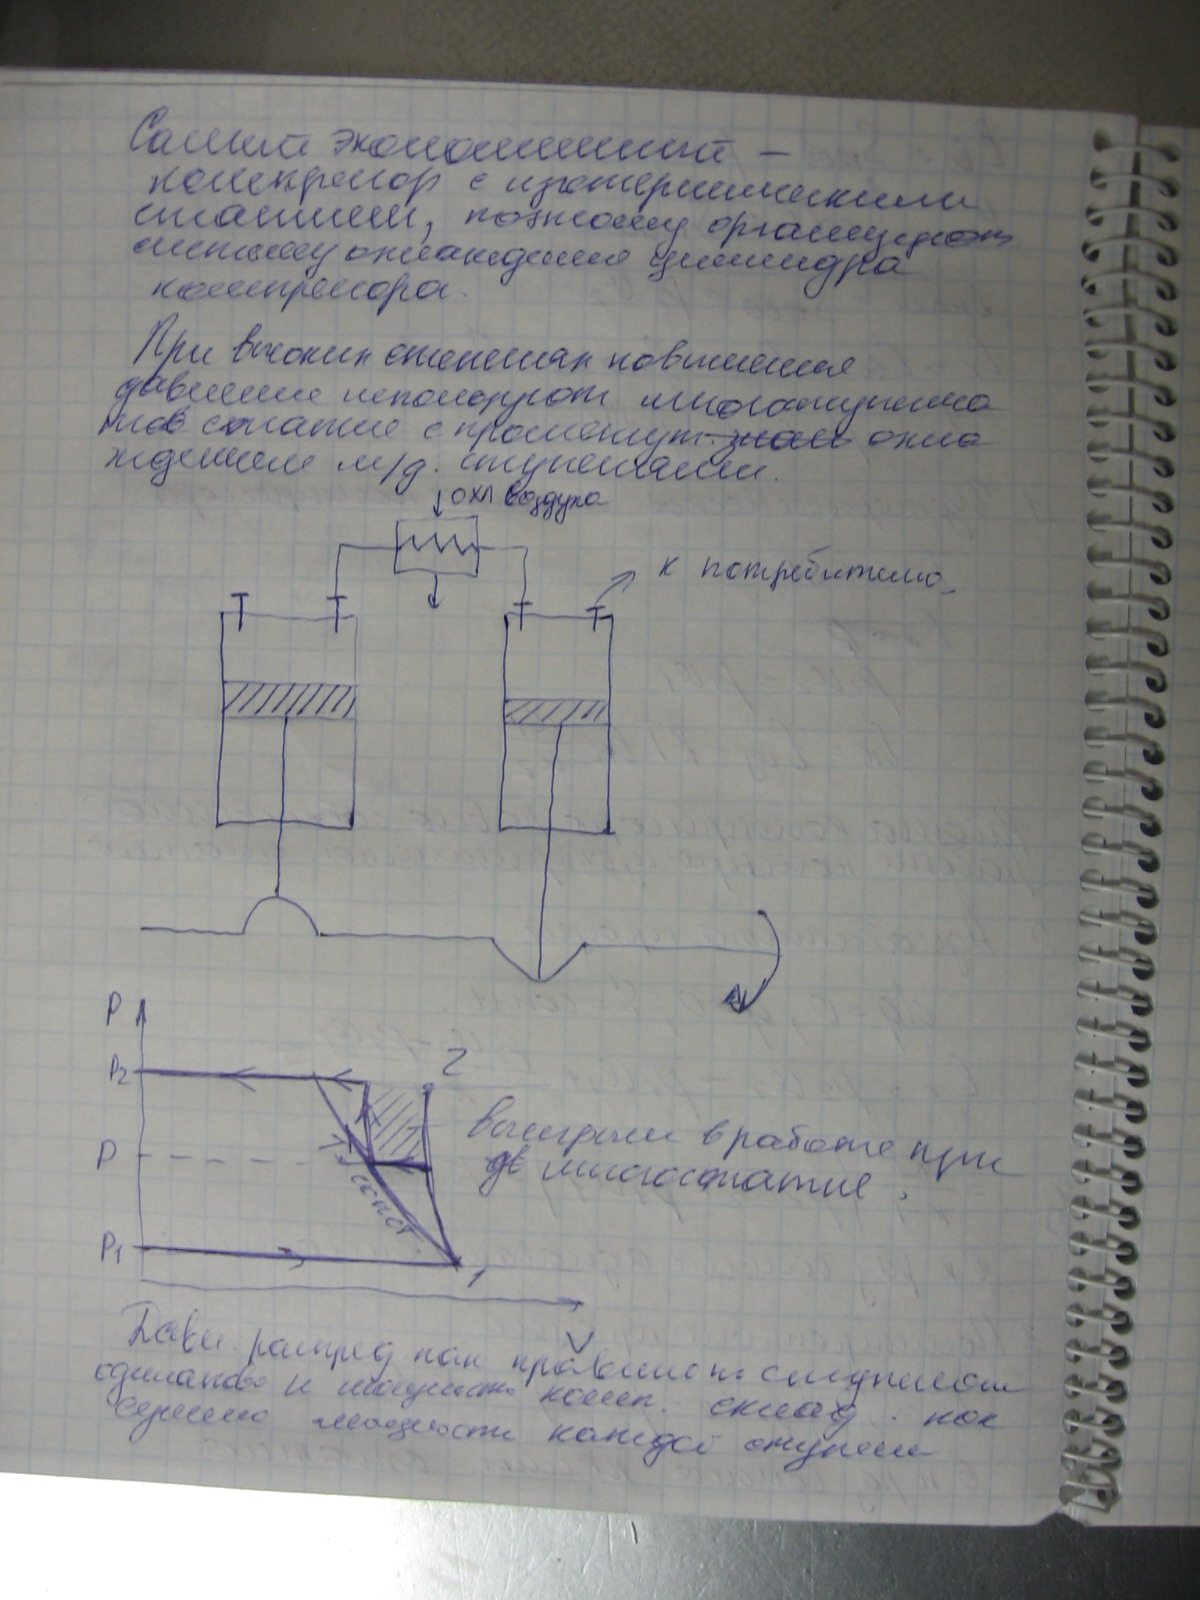 Самый экономичный —
компрессор с изотермическим
сжатием, поэтому организуют
систему охлаждения цилиндра
компрессора.
При высоких степенях повышения
давления используют многоступенча
тое сжатие с промежут. охла
ждением м/д. ступенями.
охл воздуха
к потребителю
P
P2
2
P
T const
P1
1
V
выигрыш в работе при
многосжатие.
Давл. распред как правило по ступеням
одинаково и мощность комп. склад. как
мощности каждой ступени